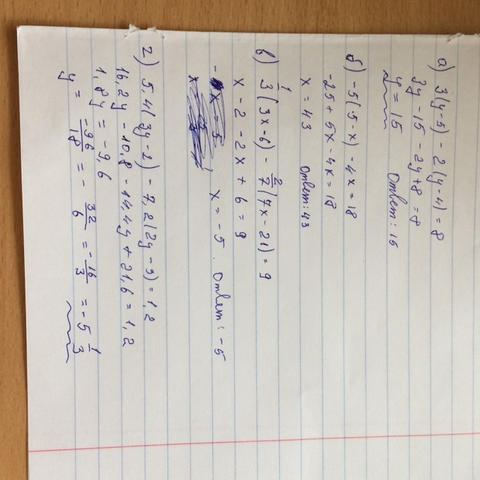 а) 3(y-5) - 2(y-4) = 8
3y - 15 - 2y + 8 = 8
y = 15 Ответ: 15
б) -5(5-x) - 4x = 18
-25 + 5x - 4x = 18
x = 43 Ответ: 43
в) 1/3(3x-6) - 2/7(7x-21) = 9
x - 2 - 2x + 6 = 9
x = -5. Ответ: -5
г) 5.4(3y-2) - 7,2(2y-3) = 1,2
16,2y - 10,8 - 14,4y + 21,6 = 1,2
1,8y = -9,6
y = -96/18 = -32/6 = -16/3 = -5 1/3